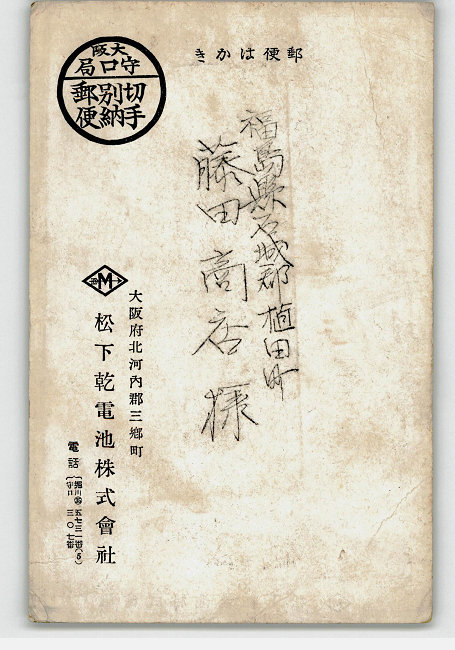 郵便はかき
大阪
守口局
切手
別納
郵便
福島縣石城郡植田町
藤田商店様
M
大阪府北河內郡三鄉町
松下乾電池株式會社
電話
堀川 五七三一番(5)
守口 三〇七番